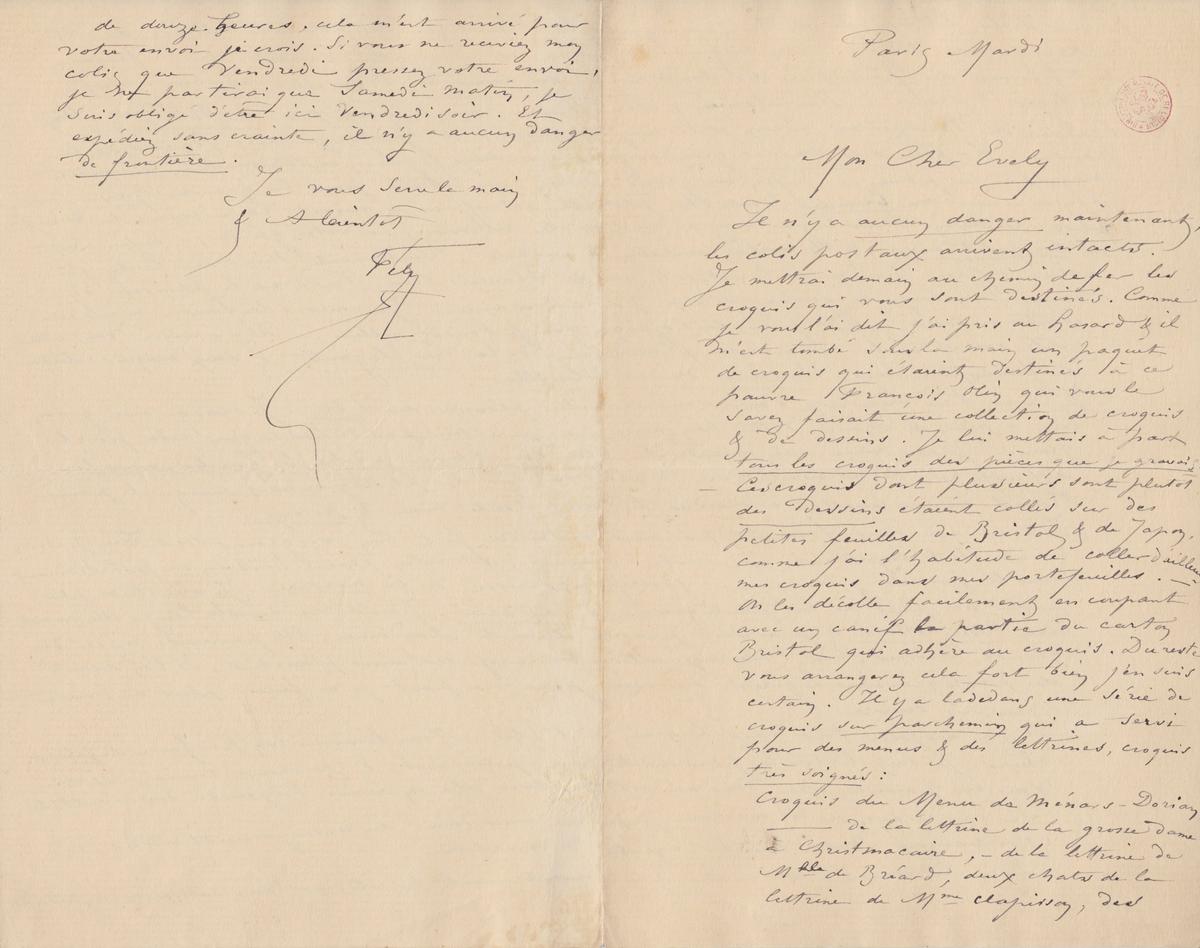 Paris Mardi
Mon Cher Evely
Il n'y a aucun danger maintenant,
les colis postaux arrivent intacts.
Je mettrai demain au chemin de fer les
croquis qui vous sont destinés. Comme
je vous l'ai dit j'ai pris au hasard & il
m'est tombé sous la main un paquet
de croquis qui étaient destinés à ce
pauvre François qui vous le
savez faisait une collection de croquis
& de dessins. Je lui mettais à part
tous les croquis des pièces que je gravais
— Ces croquis dont plusieurs sont plutôt
des dessins étaient collés sur des
petites feuilles de Bristol & de Japon,
comme j'ai l'habitude de coller d'ailleurs
mes croquis dans mes portefeuilles. —
On les décolle facilement en coupant
avec un canif la partie du carton
Bristol qui adhère au croquis. Du reste
vous arrangerez cela fort bien j'en suis
certain. Il y a ladedans une série de
croquis sur parchemin qui a servi
pour des menus & des lettrines, croquis
très soignés :
Croquis du Menu de Ménars-Dorian
— de la lettrine de la grosse dame
à Christmacaire, – de la lettrine de
Mlle de Bréard, deux chats de la
lettrine de Mme Clapisson, des
de douze heures. cela m'est arrivé pour
votre envoi je crois. Si vous ne receviez mon
colis que Vendredi pressez votre envoi,
je ne partirai que Samedi matin, je
suis obligé d'être ici Vendredi soir. Et
expédiez sans crainte, il n'y a aucun danger
de frontière.
Je vous serre la main
& A bientôt